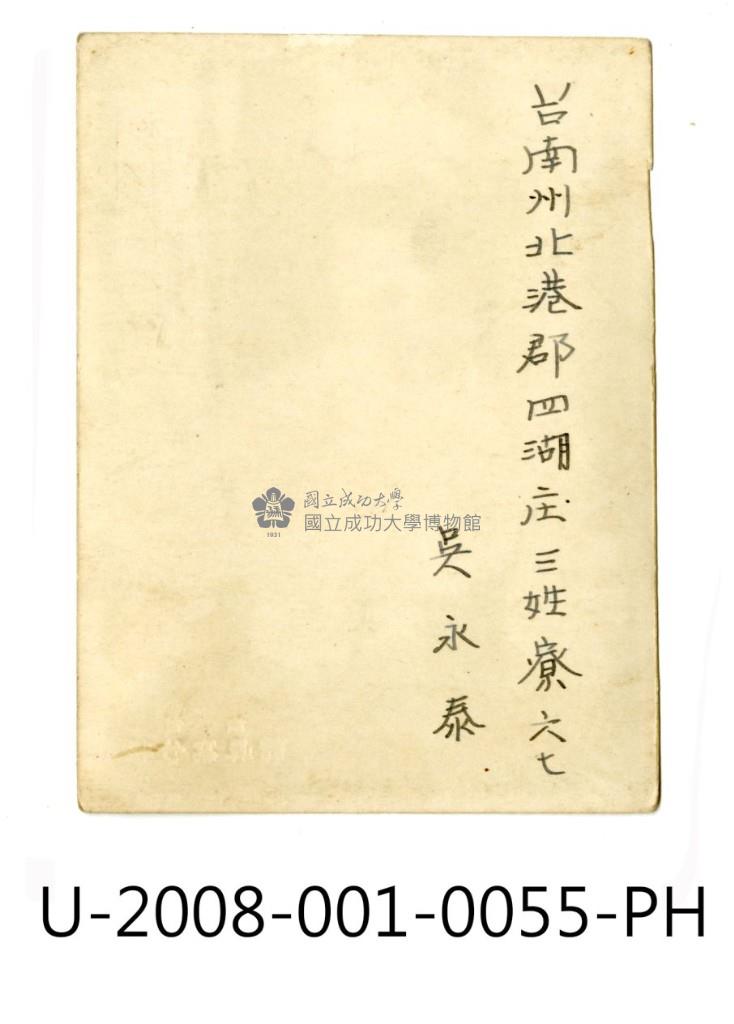 台南州北港郡四湖庄三姓寮六七
吳永泰
國立成功大學
國立成功大學博物館
1931
U-2008-001-0055-PH